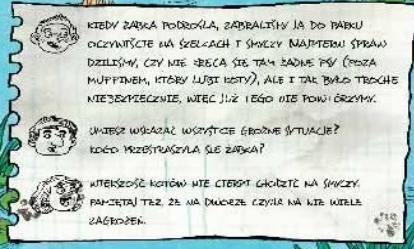 KIEDY ŻABKA PODROSŁA, ZABRALIŚMY JĄ DO PARKU
OCZYWIŚCIE NA SZELKACH I SMYCZY. NAJPIERW SPRAW
DZILIŚMY, CZY NIE KRĘCĄ SIĘ TAM ŻADNE PSY (POZA
MUFFINEM, KTÓRY LUBI KOTY), ALE I TAK BYŁO TROCHĘ
NIEBEZPIECZNIE, WIĘC JUŻ TEGO NIE POWTÓRZYMY.
UMIESZ WSKAZAĆ WSZYSTKIE GROŹNE SYTUACJE?
KOGO PRZESTRASZYŁA SIĘ ŻABKA?
WIĘKSZOŚĆ KOTÓW NIE CIERPI CHODZIĆ NA SMYCZY.
PAMIĘTAJ TEŻ, ŻE NA DWORZE CZYHA NA NIE WIELE
ZAGROŻEŃ.